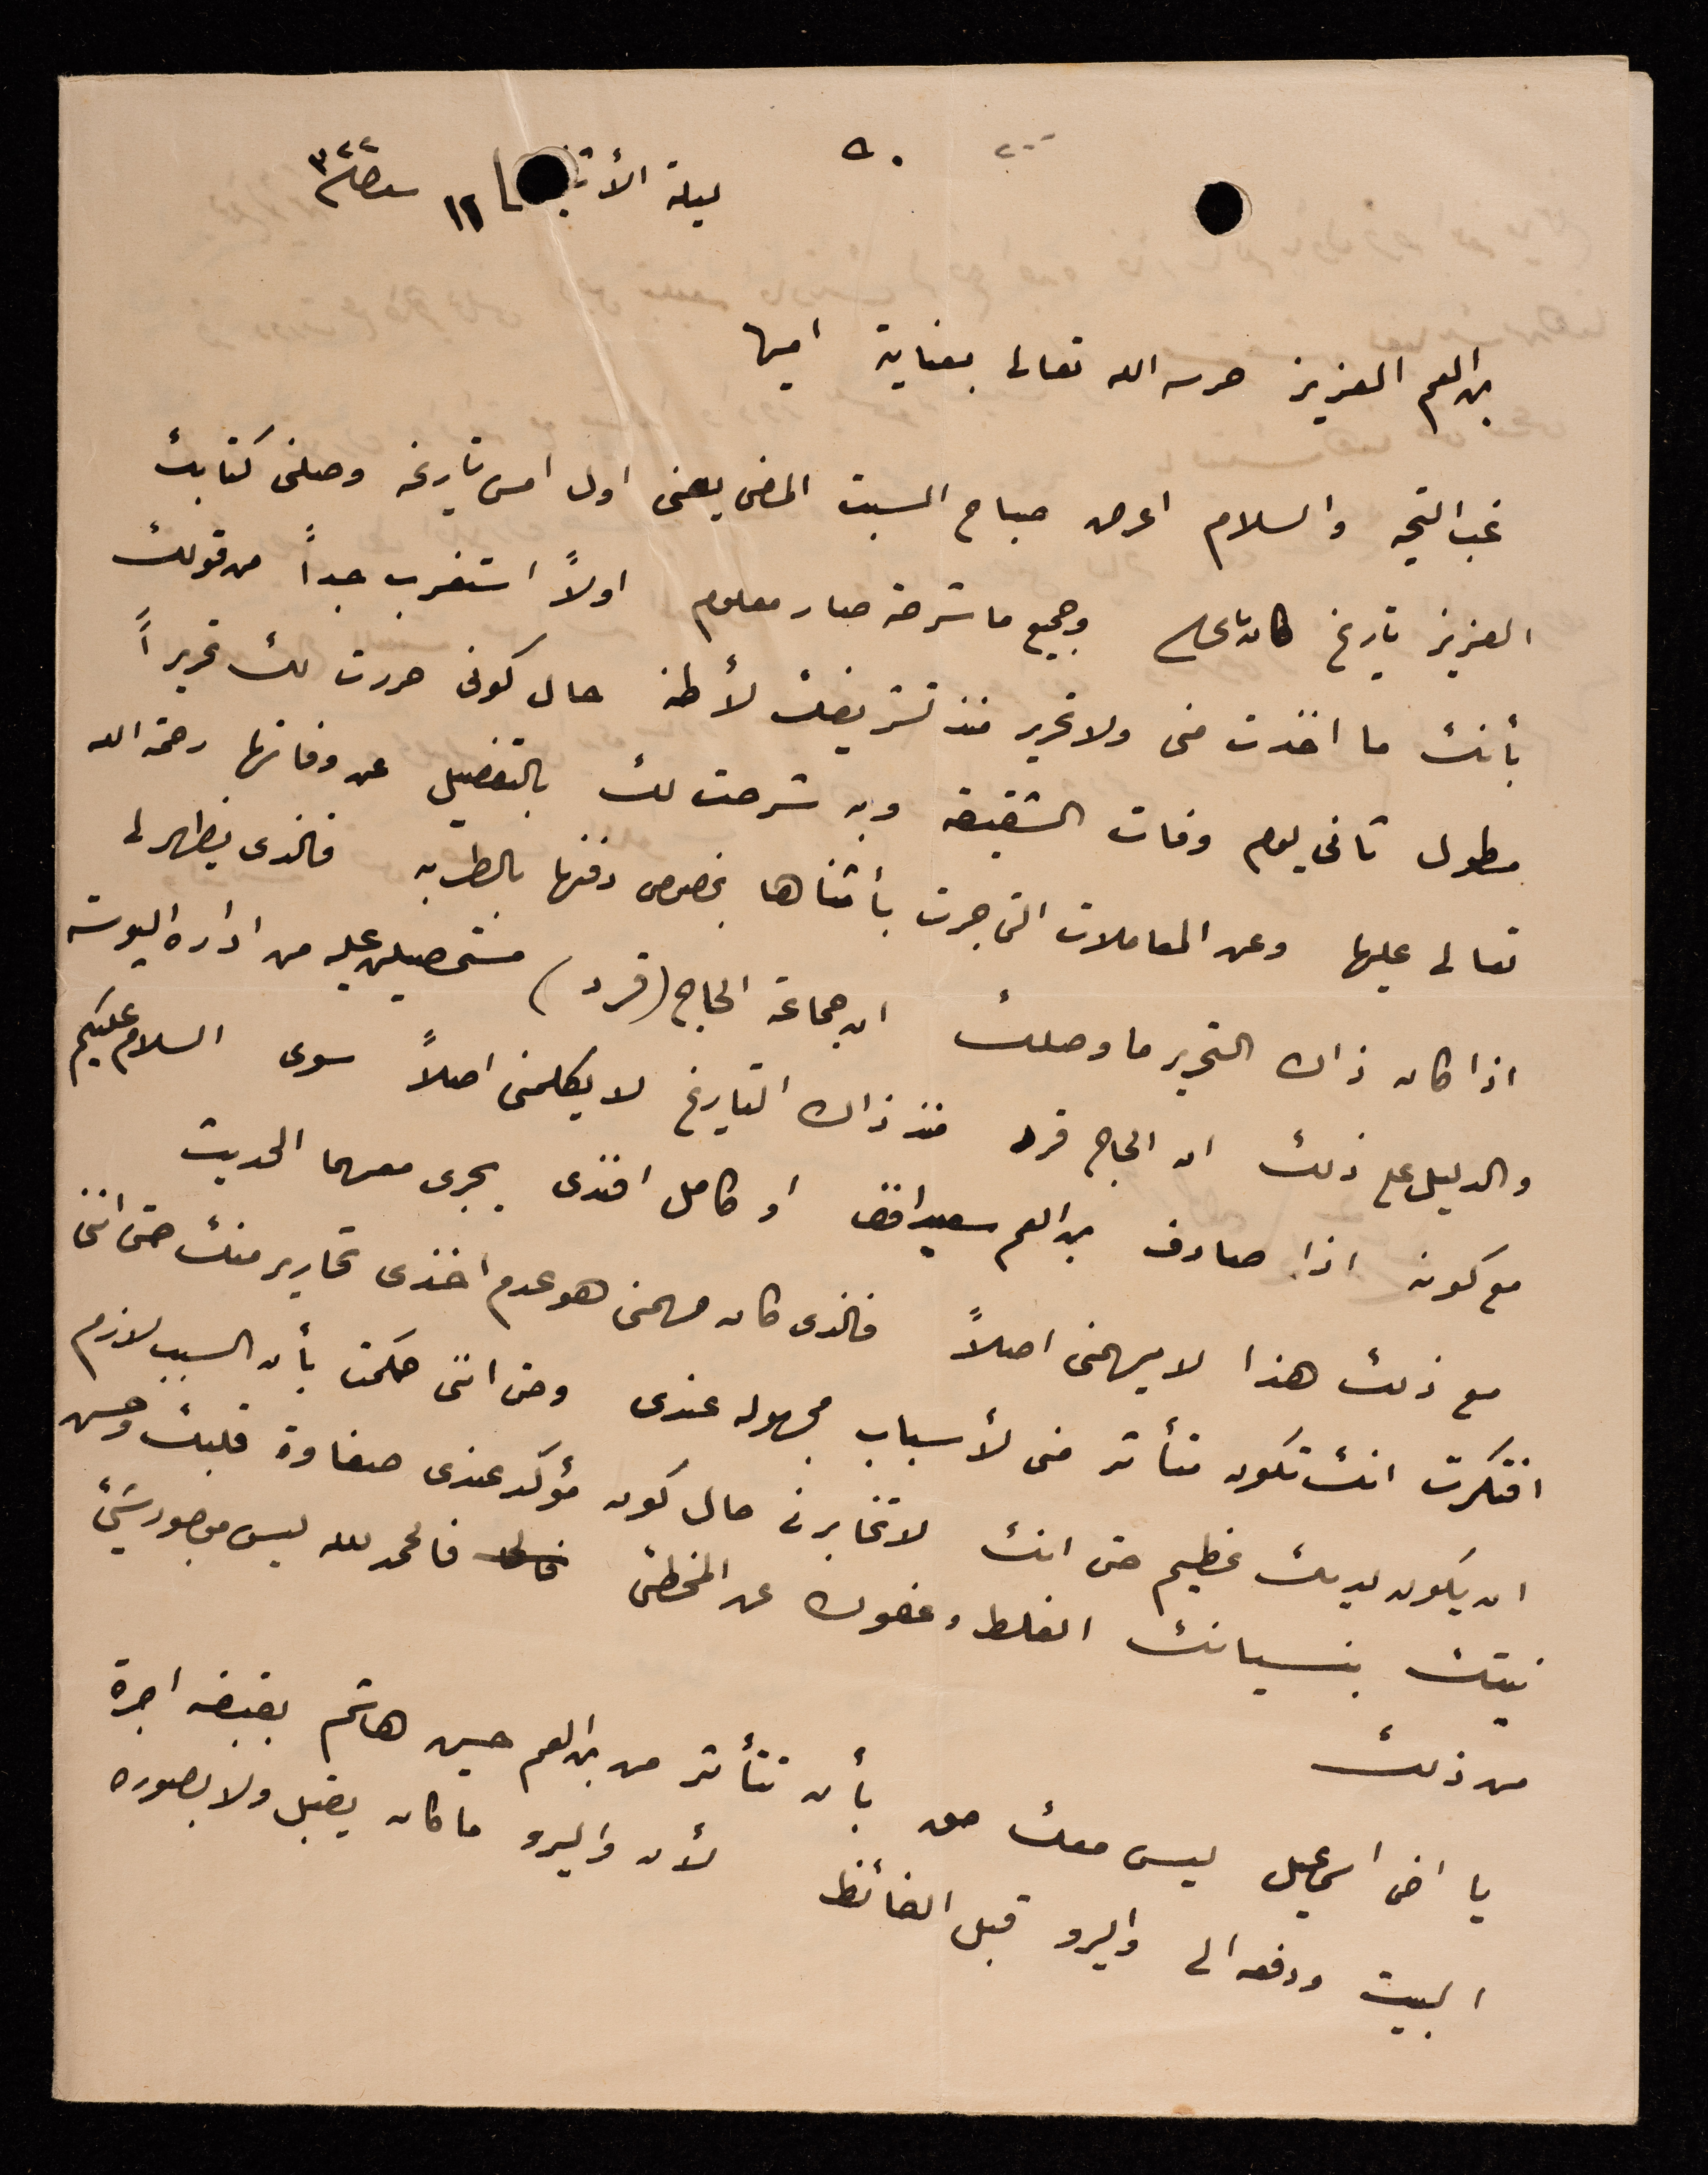 ٥٠ ٢٠٠
ليلة الأثنين ١٢ سنة ٣٢٢
ابن العم العزيز حرسه الله تعالى بعناية امين
غب التحية والسلام اعرض صباح السبت الماضي يعني اول امس تاريخه وصلني كتابك
العزيز تاريخ وجميع ما شرحته صار معلوم اولاً استغرب جداً من قولك
بأنك ما اخذت مني ولا تحرير منذ تشريفك لأطنه حال كوني حررت لك تحريراً
مطول ثاني يوم وفات الشقيقه وبه شرحت لك بالتفصيل عن وفاتها رحمة الله
تعالى عليها وعن المعاملات التي جرت بأثناها بخصوص دفنها بالطربه فالذي يظهر لي
اذا كان ذاك التحرير ما وصلك ان جماعة الحاج (قرد) مستحصلين عليه من ادارة البوسته
والدليل على ذلك ان الحاج قرد منذ ذاك التاريخ لا يكلمني اصلاً سوى السلام عليكم
مع كونه اذا صادف ابن العم سعيد افندي او كامل افندي يجرى معهما الحديث
مع ذلك هذا لا يهمني اصلاً فالذي كان مهمني هو عدم اخذي تحارير منك حتى انني
افتكرت انك تكون متأثر مني لأسباب مجهوله عندي وحتى انني حكمت بأن السبب لازم
ان يكون لديك عظيم حتى انك لا تخابرني حال كون مؤكد عندي صفاوة قلبك وحسن
نيتك بنسيانك الغلط وعفوك عن المخطئ فالحمد لله ليس موجود شيئ
من ذلك
يا اخي اسمعيل ليس معك حق بأن تتأثر من ابن العم حسين هاشم بقبضه اجرة
البيت ودفعه الى واليرو قبل الفائظ لأن واليرو ما كان يقبل ولا بصوره